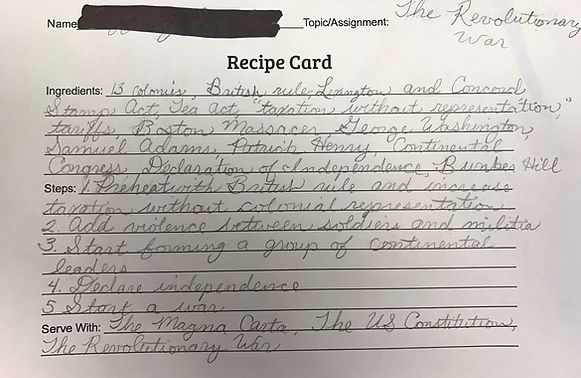 Name Topic/Assignment: The Revolutionary
War
Recipe Card
Ingredients: 13 colonis, British rule, Lexington and Concord
Stamp Act, Tea Act, "taxation without representation,"
tariffs, Boston Massacer, George Washington,
Samuel Adams, Patrick Henry, Continental
Congress, Declaration of Independence, Bunker Hill
Steps: 1. Preheat with British rule and increase
taxation without colonial representation
2. Add violence between soldiers and militia
3. Start forming a group of continental
leaders
4. Declare independence
5 Start a war
Serve With: The Magna Carta, The US Constitution,
The Revolutionary War